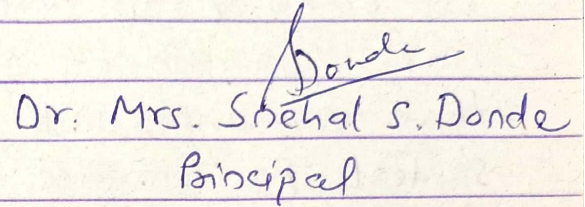 SDonde
Dr. Mrs. Snehal S. Donde
Principal